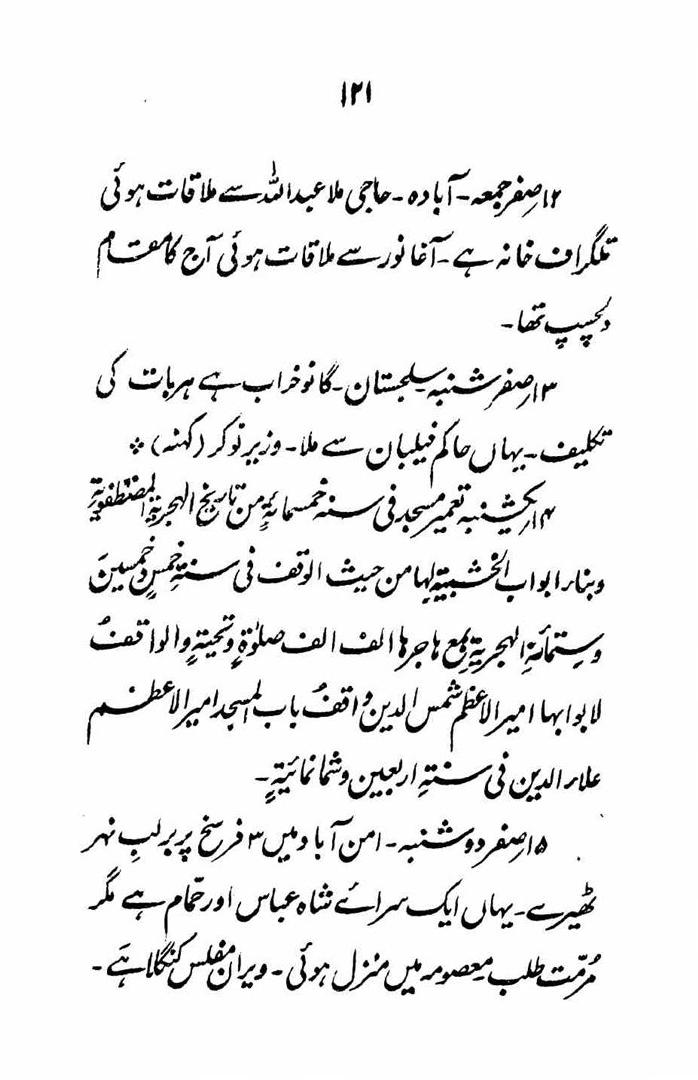 ۱۲۱
۱۲؍صفر جمعہ۔ آبادہ۔ حاجی ملا عبداللہ سے ملاقات ہوئی
تلگراف خانہ ہے۔ آغا نور سے ملاقات ہوئی آج کا مقام
دلچسپ تھا۔
۱۳؍صفر شنبہ۔ سلجستان۔ گانو خراب ہے ہر بات کی
تکلیف۔ یہاں حاکم فیلبان سے ملا۔ وزیر نوکر (کہنہ) *
۱۴؍یکشنبہ تعمیر مسجد فی سنہ خمسمائۃٍ من تاریخ الہجریۃ المصطفویۃ
وبناء ابواب الخشبیۃ لہا من حیث الوقف فی سنۃِ خمسٍ وخمسینَ
وستمائۃِ الہجریۃِ مع ہاجرہا الف الف صلوٰۃٍ وتحیۃٍ والواقفُ
لابوابہا امیر الاعظم شمس الدین واقفُ باب المسجد امیر الاعظم
علاء الدین فی سنۃِ اربعین وثمانمائیۃٍ۔
۱۵؍صفر دوشنبہ۔ امن آباد میں ۳ فرسخ پر برلبِ نہر
ٹھیرے۔ یہاں ایک سرائے شاہ عباس اور حمّام ہے مگر
مُرمّت طلب۔ معصومہ میں منزل ہوئی۔ ویران مفلس کنگلا ہَے۔